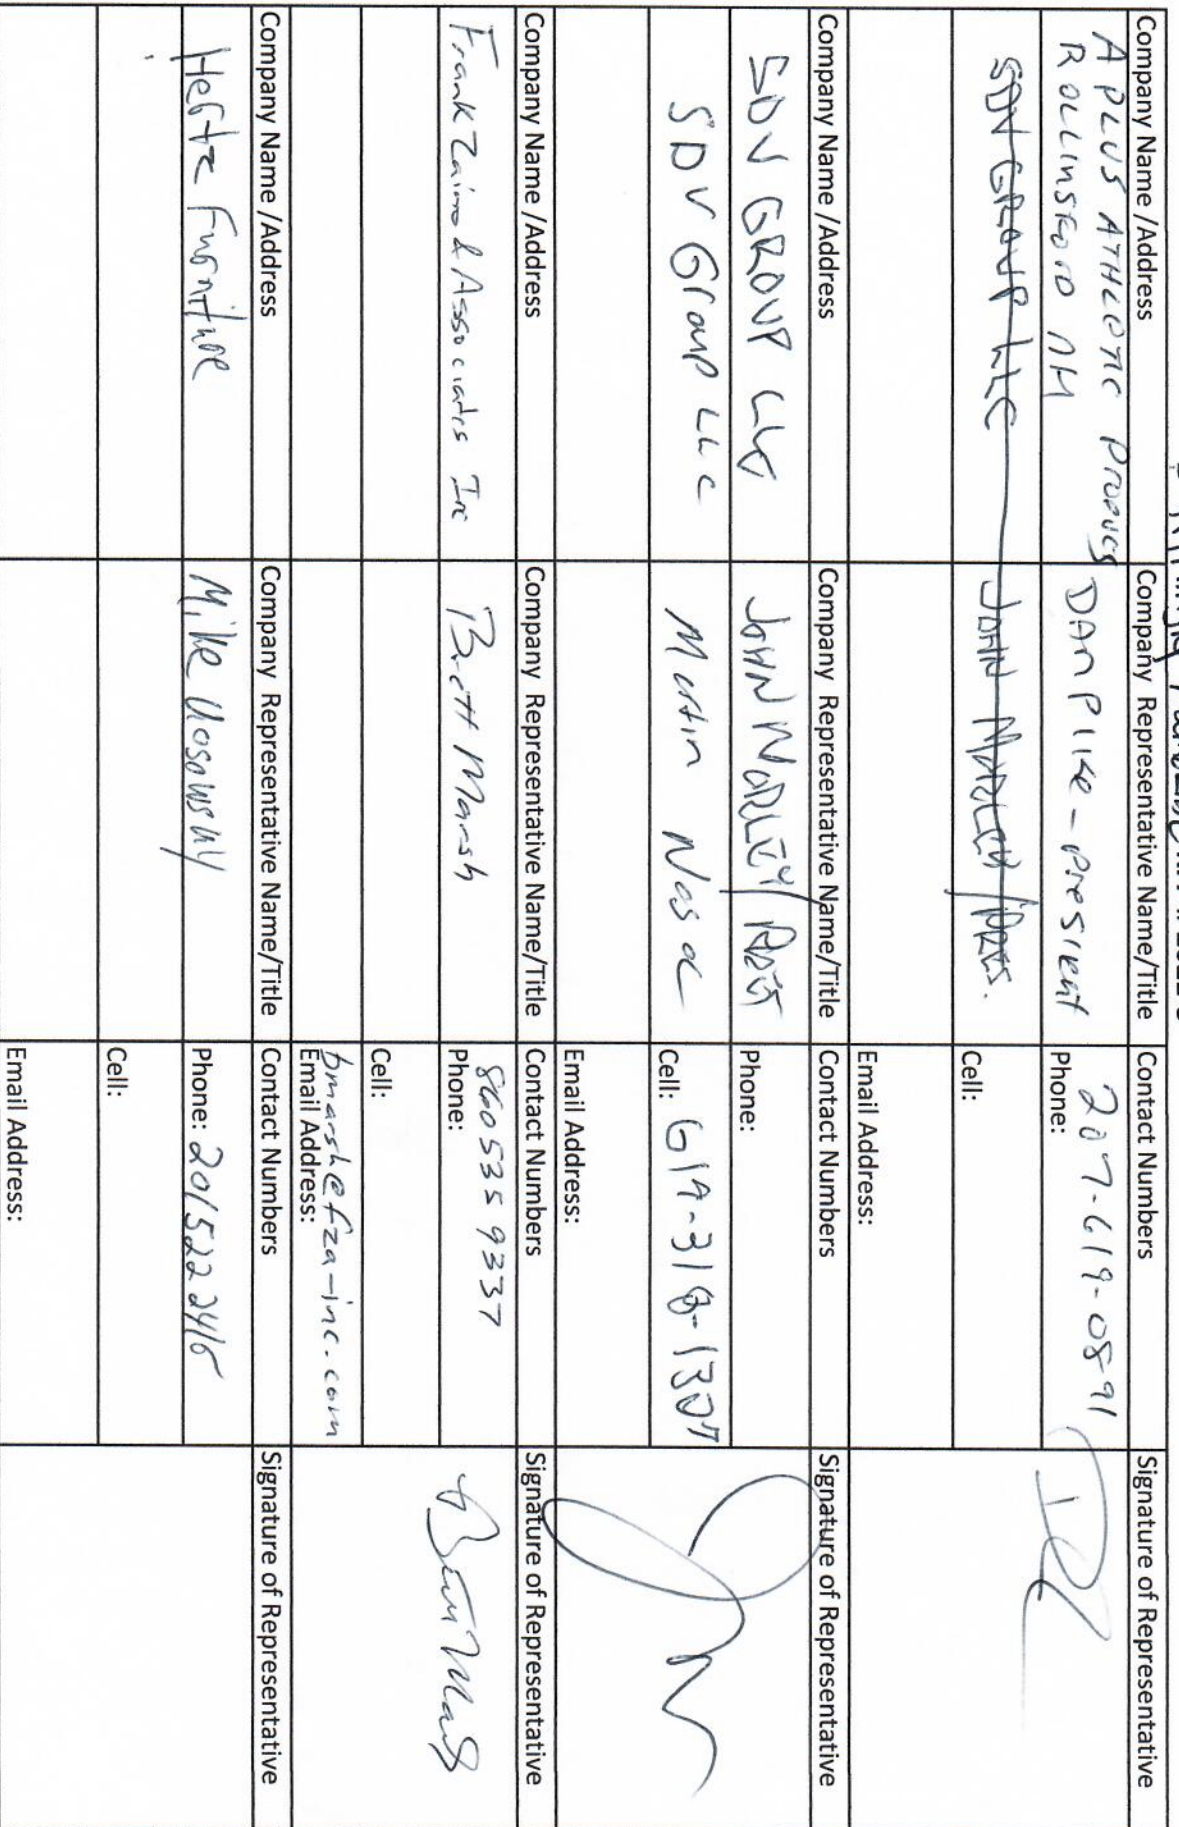 Company Name /Address Company Representative Name/Title Contact Numbers Signature of Representative
A PLUS ATHLETIC PRODUCTS DAN PIIKE - PRESIDENT Phone: 207-619-0891
ROLLINSFORD NH
SDV GROUP LLC JOHN MORLEY / PRES. Cell:
Email Address:
Company Name /Address Company Representative Name/Title Contact Numbers Signature of Representative
SDV GROUP LLC JOHN MORLEY / Phone:
SDV Group LLC Martin Cell: 619-318-1307
Email Address:
Company Name /Address Company Representative Name/Title Contact Numbers Signature of Representative
Frank Zaino & Associates Inc Brett Marsh Phone: 860 535 9337
Cell:
bmarsh@fza-inc.com
Email Address:
Company Name /Address Company Representative Name/Title Contact Numbers Signature of Representative
Hertz Furniture Mike Phone: 201 522 2416
Cell:
Email Address: